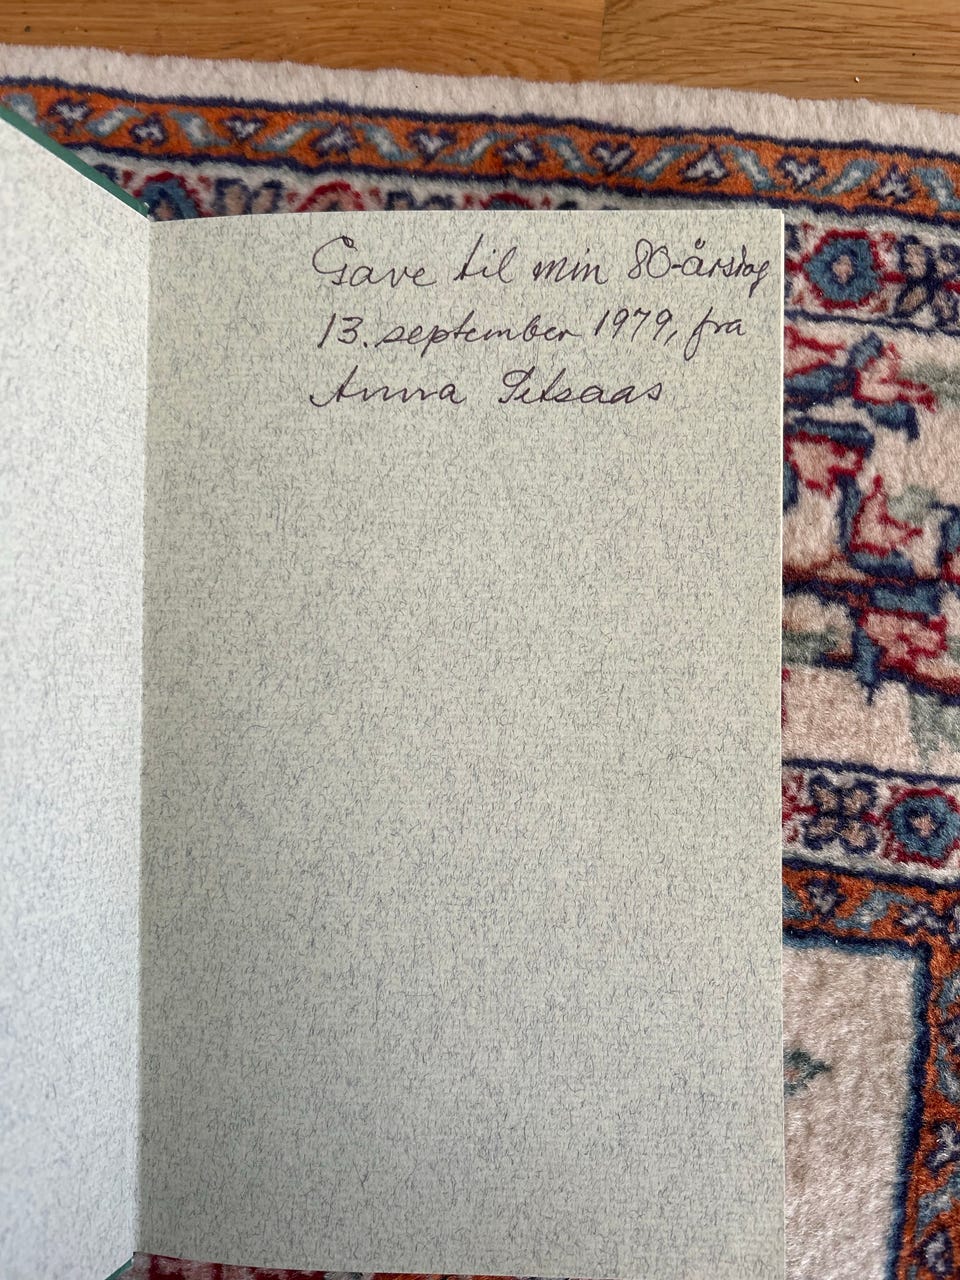 Gave til min 80-årsdag
13. september 1979, fra
Anna